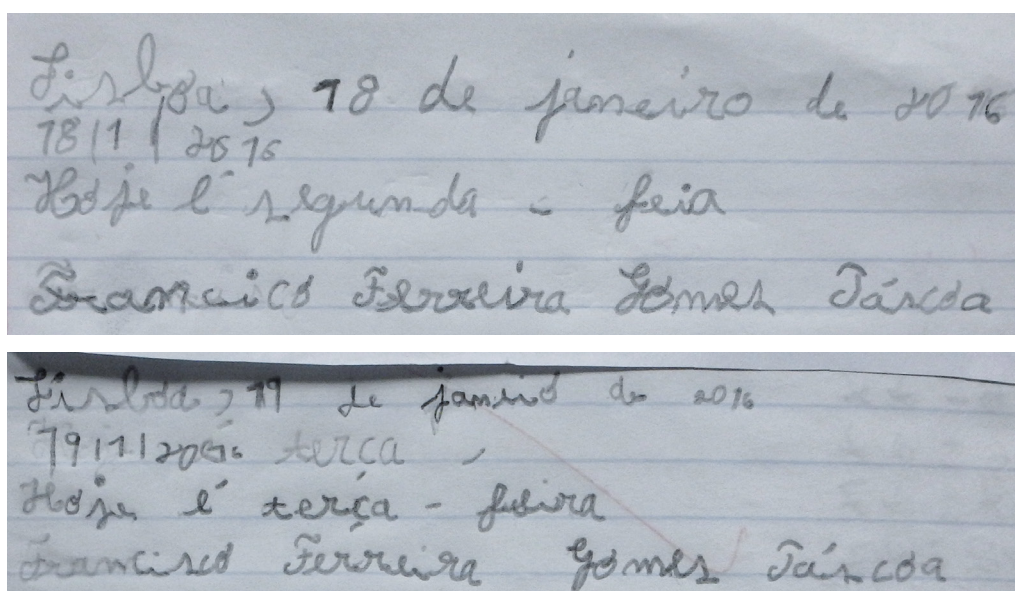 Lisboa, 18 de janeiro de 2016
18|1|2016
Hoje é segunda - feia
Francico Ferreira Gomes Páscoa
Lisboa, 19 de janeiro de 2016
19|1|2016 terca
Hoje é terça - feira
Francisco Ferreira Gomes Páscoa